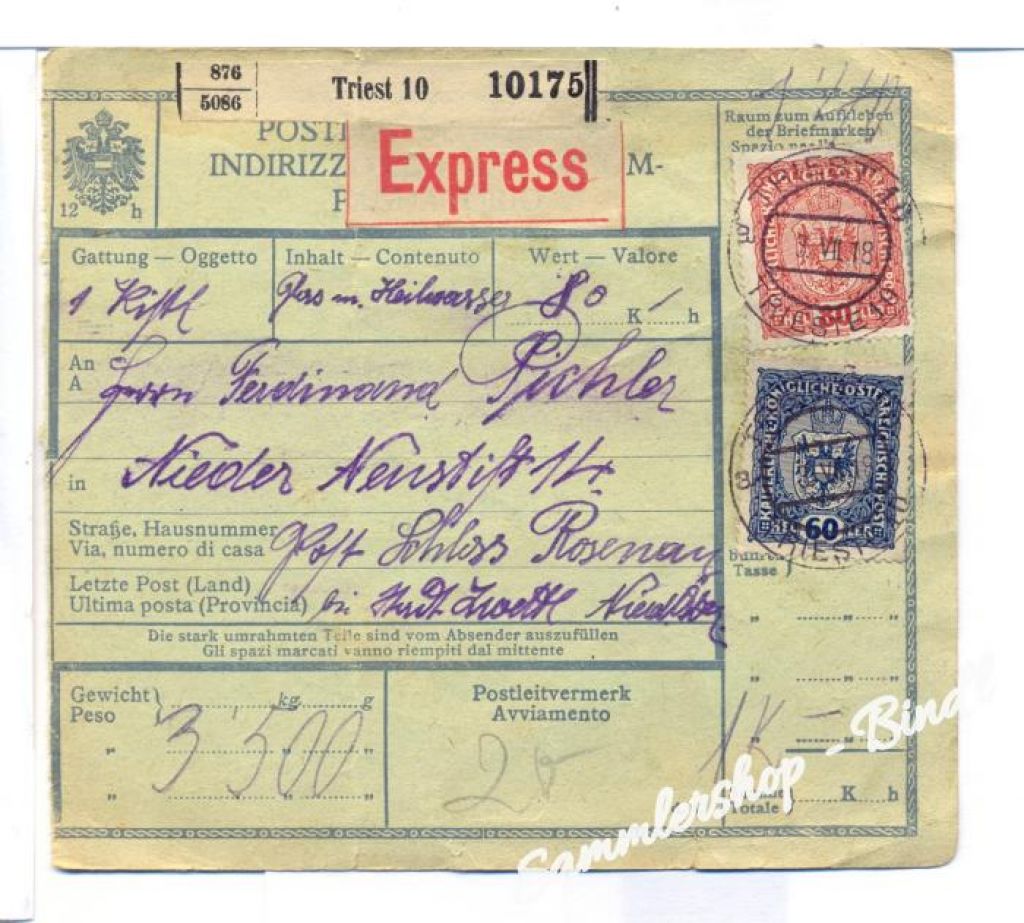 876
5086
Triest 10 10175
POST
INDIRIZZ M-
P
Express
12 h
Raum zum Aufkleben
der Briefmarken
Spazio
Gattung — Oggetto
Inhalt — Contenuto
Wert — Valore
1 Kistl
m. Heilwasser
80
K h
An
A
Herrn Ferdinand Pichler
in
Nieder Neustift 14
Straße, Hausnummer
Via, numero di casa
Post Schloss Rosenau
Letzte Post (Land)
Ultima posta (Provincia)
bei Stadt Zwettl
Die stark umrahmten Teile sind vom Absender auszufüllen
Gli spazi marcati vanno riempiti dal mittente
Gewicht
Peso
kg g
3 500
Postleitvermerk
Avviamento
TRIEST 10
VII 18
TRIESTE 10
80
KAISERLICHE KÖNIGLICHE ÖSTERREICHISCHE POST
60
TRIESTE 10
Tasse
1K —
Totale
K h
Sammlershop - Bina